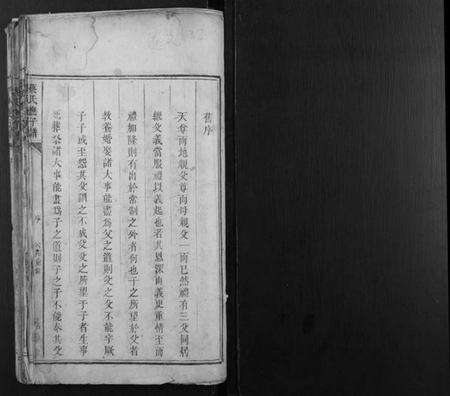 舊序
天尊而地親父尊而母親父一而已然禮有三父同居
繼父義當服禮以義起也若其恩深而義更重情至而
禮加隆則有出於常制之外者何也子之所望於父者
教養婚娶諸大事能盡為父之道則父之父不能辛厥
子子或至怨其父謂之不成父父之所望于子者生事
葬祭諸大事能盡為子之道則子之子不能奉其父
氏應子譜
序